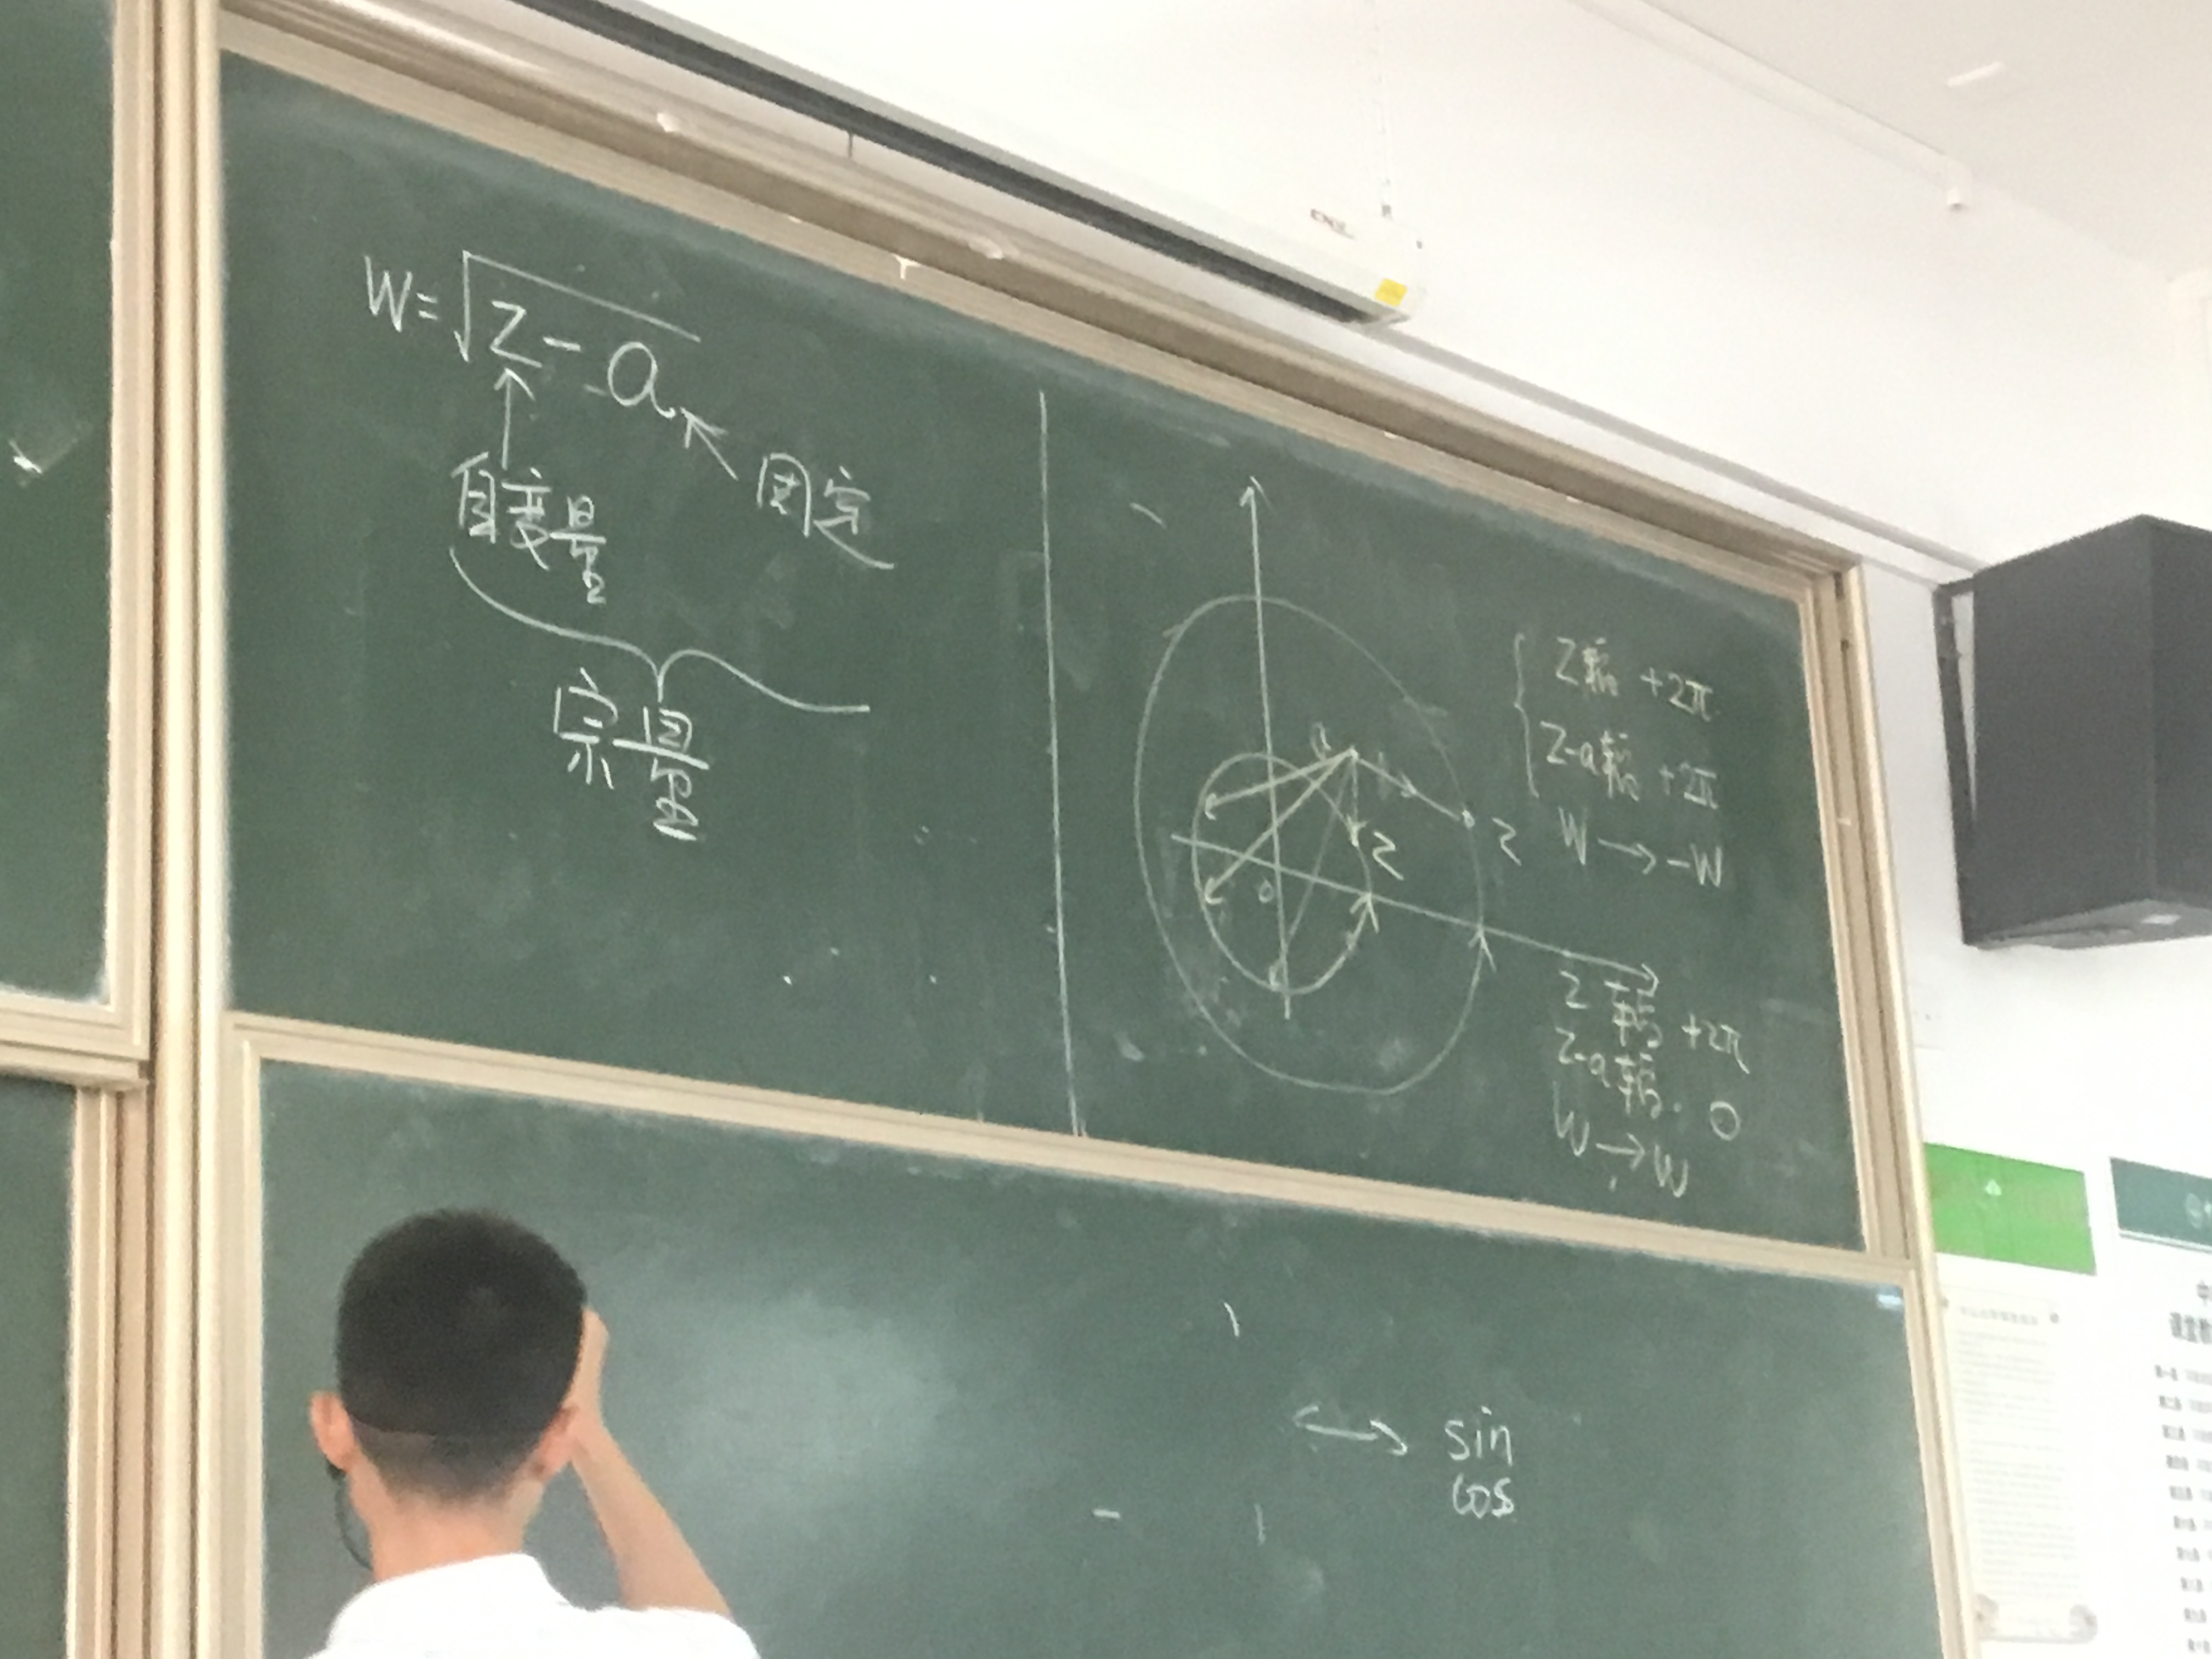 W=√z-a
自变量
固定
宗量
a
z
z
0
z辐 +2π
z-a辐 +2π
W→-W
z 辐 +2π
z-a辐. 0
W→W
↔ sin
cos